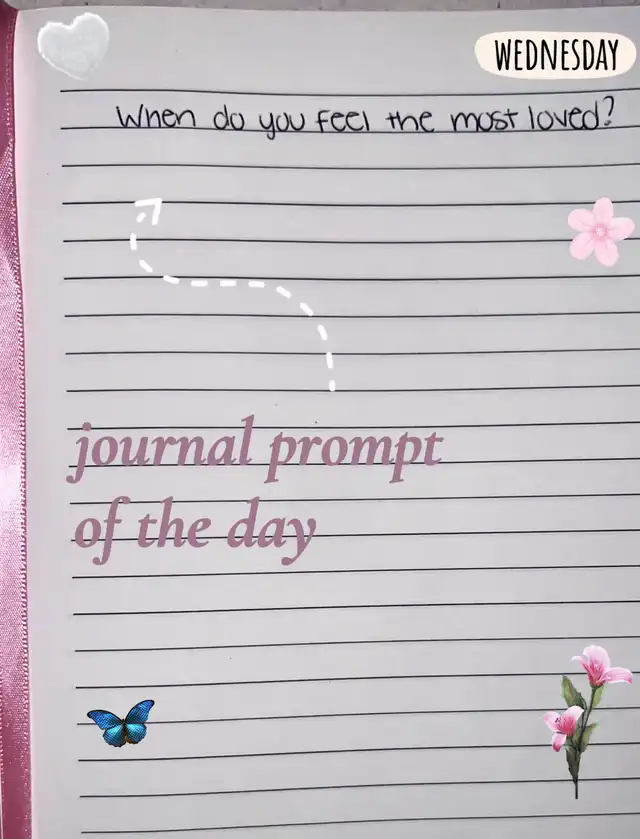 WEDNESDAY
When do you feel the most loved?
journal prompt
of the day